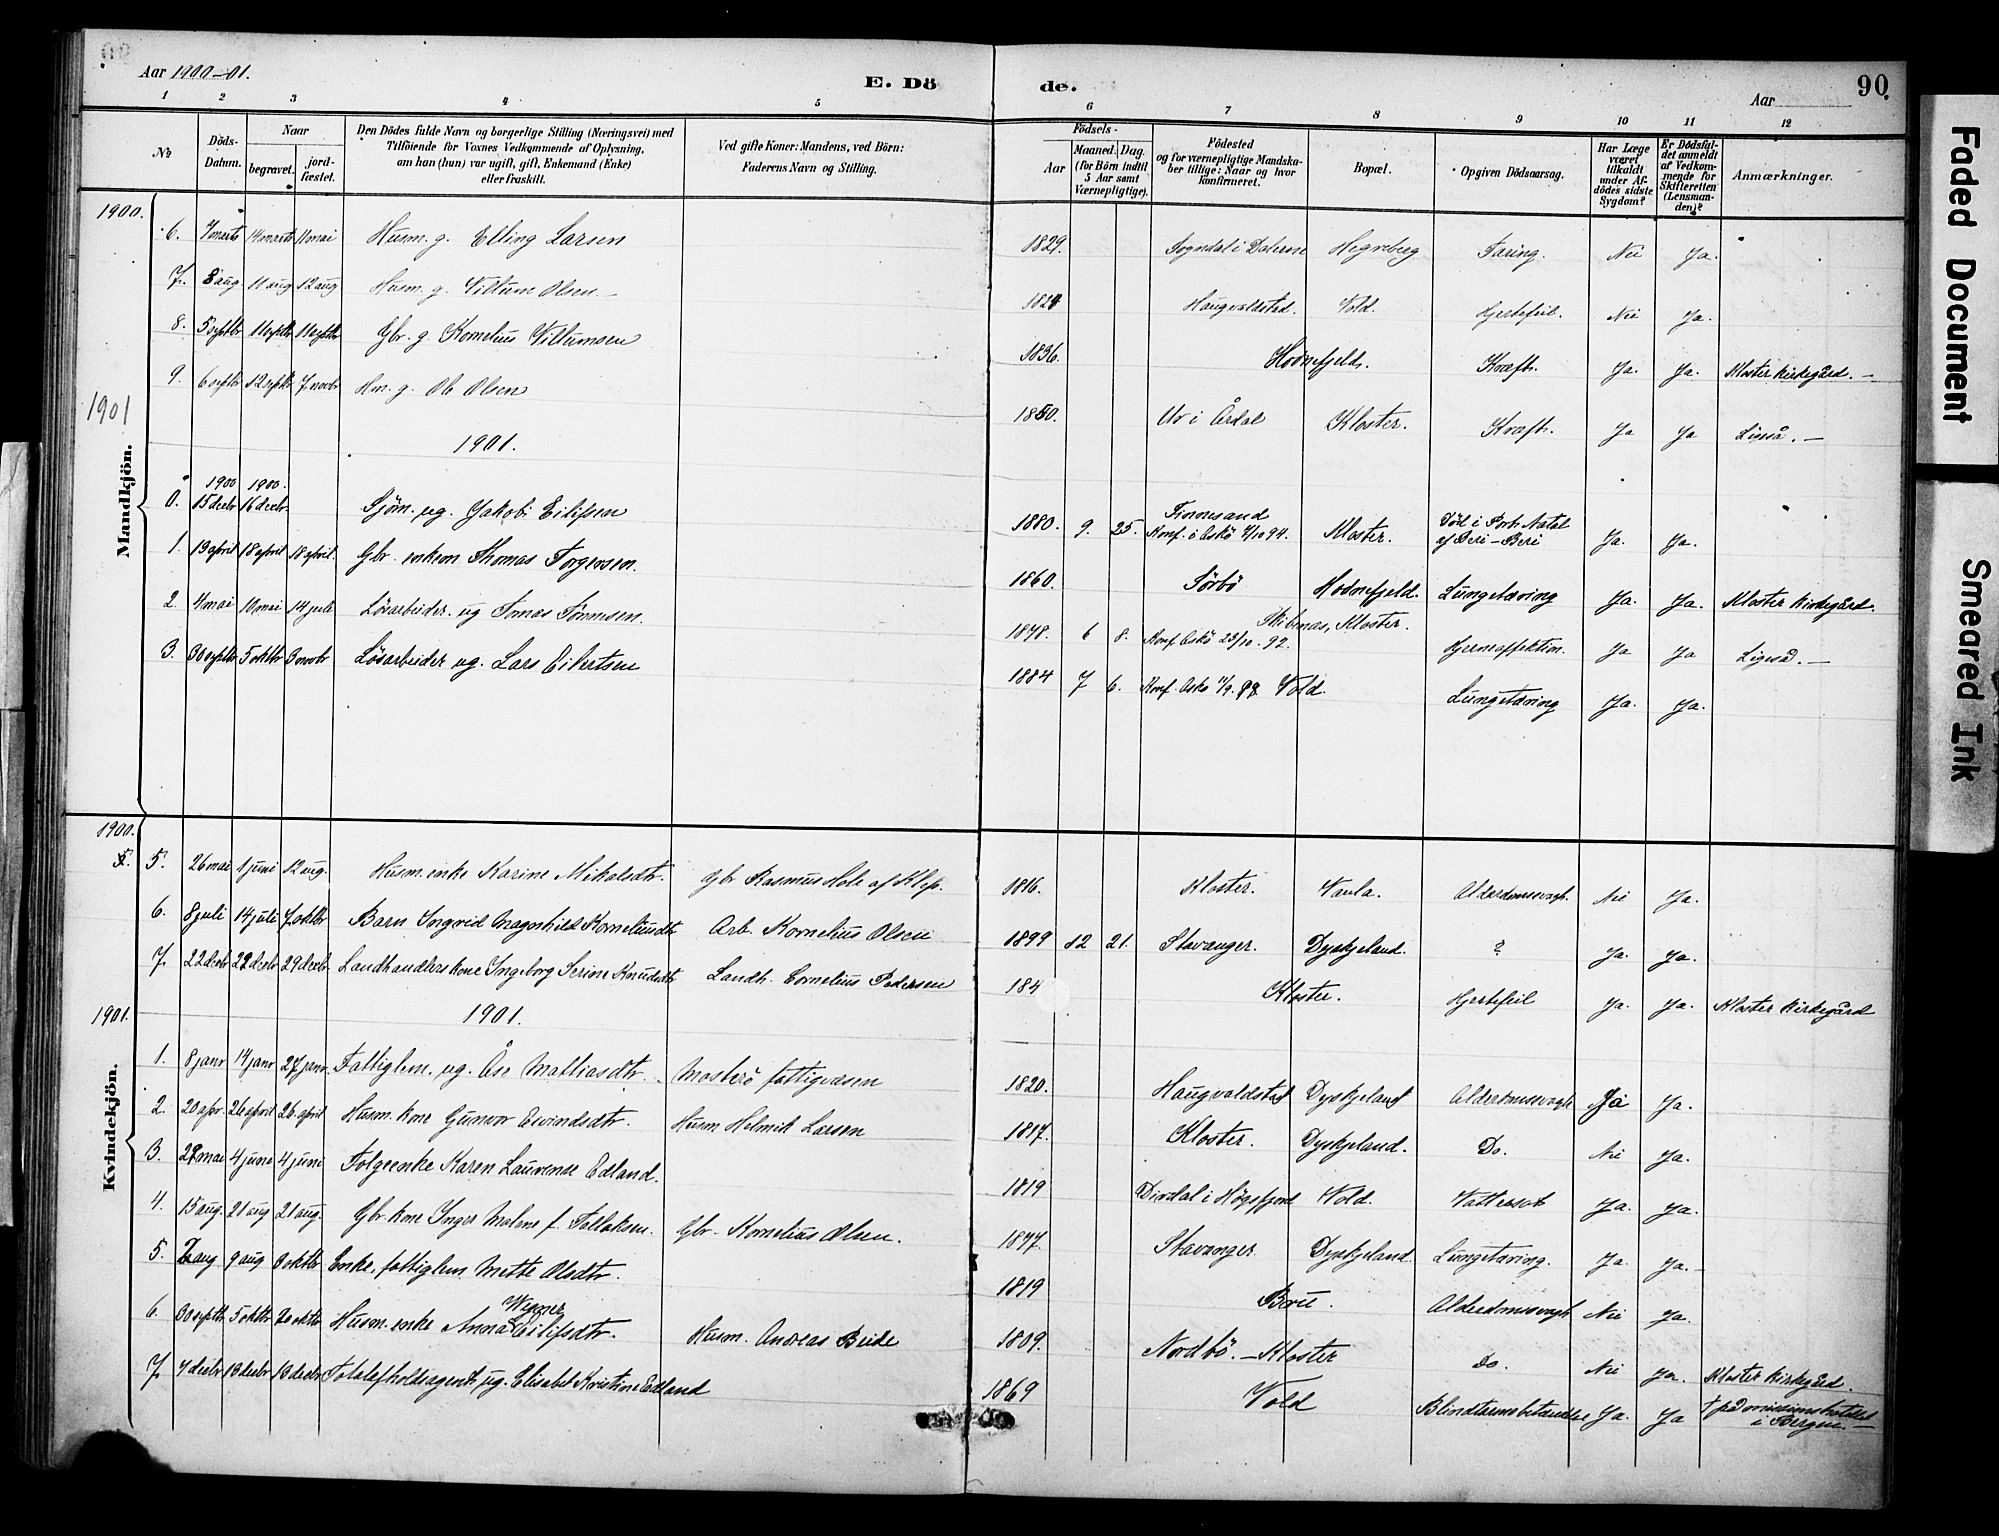 Aar 1900-01.
E. Dö
de.
Aar
90
1 2 3 4 5 6 7 8 9 10 11 12
No
Döds-Datum.
Naar
begravet.
jordfæstet.
Den Dödes fulde Navn og borgerlige Stilling (Næringsvei) med
Tilföiende for Voxnes Vedkommende af Oplysning,
om han (hun) var ugift, gift, Enkemand (Enke)
eller fraskilt.
Ved gifte Koner: Mandens, ved Börn:
Faderens Navn og Stilling.
Födsels-
Aar
Maaned. Dag.
(for Börn indtil
5 Aar samt
Værnepligtige).
Födested
og for værnepligtige Mandska-
ber tillige: Naar og hvor
konfirmeret.
Bopæl.
Opgiven Dödsaarsag.
Har Læge
været
tilkaldt
under Af-
dödes sidste
Sygdom?
Er Dödsfal-
det anmeldt
af Vedkom-
mende for
Skifteretten
(Lensman-
den)?
Anmærkninger.
1900.
6. 7 marts 14 marts 11 mai Husm. g. Elling Larsen 1829. Sogndal i Dalerne Hegreberg Tæring. Nei Ja.
7. 8 aug 11 aug 12 aug Husm. g. Viltum Olsen. 1824 Haugvaldstad. Vold. Hjertefeil. Nei Ja.
8. 5 septbr 11 septbr 11 septbr Gbr. g. Kornelius Viltumsen 1836. Hodnefjeld. Kræft. Ja. Ja. Kloster kirkegård. —
9. 6 septbr 12 septbr 7 novbr Hm. g. Ole Olsen 1850. Ur i Årdal Kloster. Kræft. Ja Ja Ligeså. —
1901
1901.
Mandkjön.
1900 1900.
0. 15 decbr 16 decbr Sjöm. ug. Jakob Eilifsen 1880. 9. 25. Finnesand Konf. i Askö 7/10 94. Kloster. Död i Port. Natal af Beri-Beri Ja. Ja.
1. 13 april 18 april 18 april Gbr. enkem Thomas Torgersen. 1860. Sörbö Hodnefjeld. Lungetæring Ja. Ja. Kloster kirkegård.
2. 4 mai 10 mai 14 juli Lösarbeider. ug Tönnesen. 1878. 6 8. Konf. Askö 23/10. 92. Kloster. Hjerneaffektion. Ja Ja Ligeså. —
3. 30 septbr 5 oktbr 3 novbr Lösarbeider ug. Lars Eilertsen 1884 7 6. Konf. Askö Vold. Lungetæring Ja. Ja.
1900.
5. 26 mai 1 juni 12 aug. Husm. enke Karine Mikalsdtr. Gbr Rasmus Hole af Klep. 1816. Kloster. Vaula. Alderdomssvagh. Nei Ja.
6. 8 juli 14 juli 7 oktbr Barn Ingrid Magnhild Korneliusdtr Arb. Kornelius Olsen 1899 12 21. Stavanger. Dysjeland. ? Ja. Ja.
7. 22 decbr 29 decbr 29 decbr Landhandlerskone Ingeborg Serine Knudsdtr Landh. Cornelius Pedersen 184 Kloster. Hjertefeil Ja. Ja. Kloster kirkegård
1901.
1901.
Kvindekjön.
1. 8 janr 14 janr 27 janr. Fattiglem. ug. Åse Mathiasdtr. Mosterö fattigvæsen 1820. Haugvaldstad Dysjeland Alderdomssvagh Ja Ja.
2. 20 apr. 26 april 26 april Husm. kone Gunvor Eivindsdtr. Husm Helmik Larsen 1817. Kloster. Dysjeland. Do. Nei Ja.
3. 27 mai 4 juni 4 juni Folgeenke Karen Laurense Edland. 1819 Dirdal i Högsfjord Vold. Vattersot Ja. Ja.
4. 15 aug. 21 aug 21 aug. Gbr. kone Inger Malene f. Tollaksen. Gbr. Kornelius Olsen. 1877. Stavanger. Dysjeland Lungetæring. Ja. Ja. —
5. 2 aug 9 aug 8 oktbr Enke, fattiglem Mette Olsdtr. 1819 Bru. Alderdomssvagh Nei Ja.
6. 30 septbr 5 oktbr 20 oktbr Husm. enke Anna Eilifsdtr. Husm. Andreas Beide 1809. Nordbö. — Kloster Do. Nei Ja. Kloster kirkegård.
7. 7 decbr 13 decbr 13 decbr Totalafholdsagent, ug. Elisabet Kristine Edland 1869 Vold Blindtarmsbetændelse Ja. Ja † på missionshotellet i Bergen. —
Faded Document
Smeared Ink